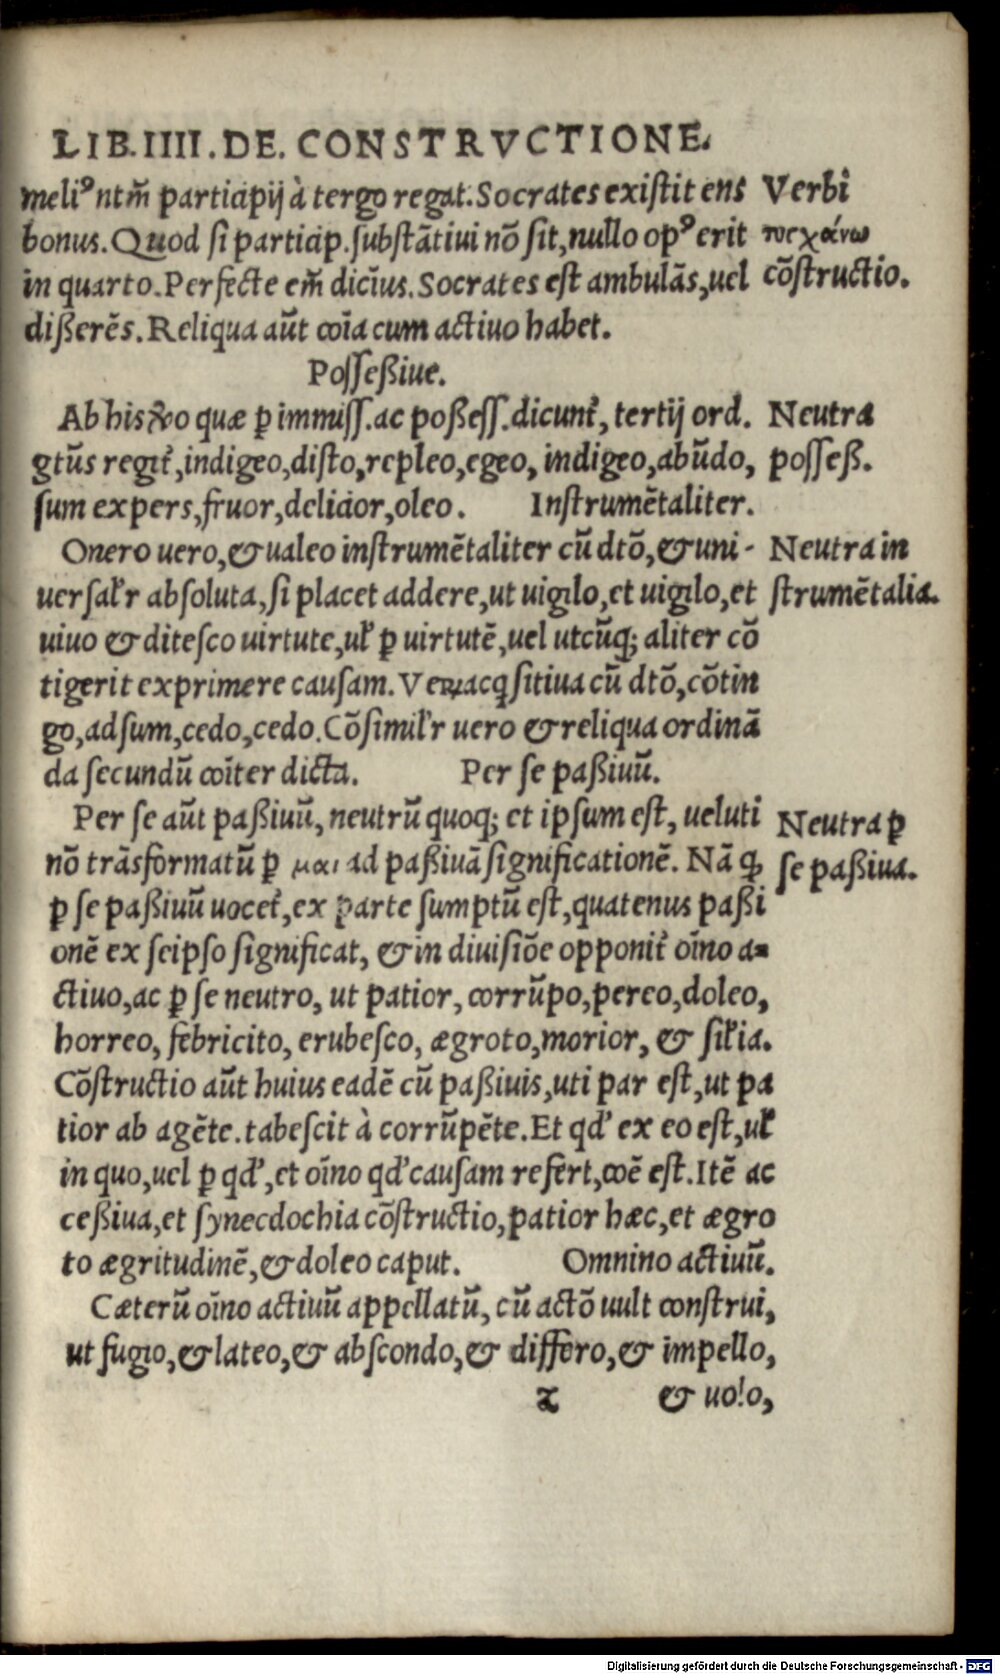 LIB. IIII. DE. CONSTRVCTIONE.
meliꝰ ntm̃ participij à tergo regat. Socrates existit ens
bonus. Quod si particip. substãtiui nõ sit, nullo opꝰ erit
in quarto. Perfecte em̃ diciũs. Socrates est ambulãs, uel
dißerẽs. Reliqua aũt oĩa cum actiuo habet.
Verbi
τυγχάνω
cõstructio.
Posseßiue.
Ab his quæ ꝑ immiss. ac poßess. dicunt̃, tertij ord.
gtũs regit̃, indigeo, disto, repleo, egeo, indigeo, abũdo,
sum expers, fruor, delicior, oleo. Instrumẽtaliter.
Neutra
posseß.
Onero uero, & ualeo instrumẽtaliter cũ dtõ, & uni-
uersal'r absoluta, si placet addere, ut uigilo, et uigilo, et
uiuo & ditesco uirtute, ul' ꝑ uirtutẽ, uel utcũq; aliter cõ
tigerit exprimere causam. Veꝝ acq̃sitiua cũ dtõ, cõtin
go, adsum, cedo, cedo. Cõsimil'r uero & reliqua ordinã
da secundũ oĩter dicta. Per se paßiuũ.
Neutra in
strumẽtalia.
Per se aũt paßiuũ, neutrũ quoq; et ipsum est, ueluti
nõ trãsformatũ ꝑ μαι ad paßiuã significationẽ. Nã ꝙ
ꝑ se paßiuũ uocet̃, ex parte sumptũ est, quatenus paßi
onẽ ex seipso significat, & in diuisiõe opponit̃ oĩno a=
ctiuo, ac ꝑ se neutro, ut patior, corrũpo, pereo, doleo,
horreo, febricito, erubesco, ægroto, morior, & sil'ia.
Cõstructio aũt huius eadẽ cũ paßiuis, uti par est, ut pa
tior ab agẽte. tabescit à corrũpẽte. Et qd' ex eo est, ul'
in quo, uel ꝑ qd', et oĩno qd' causam refert, oẽ est. Itẽ ac
ceßiua, et synecdochia cõstructio, patior hæc, et ægro
to ægritudinẽ, & doleo caput. Omnino actiuũ.
Neutra ꝑ
se paßiua.
Cæterũ oĩno actiuũ appellatũ, cũ actõ uult construi,
ut fugio, & lateo, & abscondo, & differo, & impello,
z & uolo,
Digitalisierung gefördert durch die Deutsche Forschungsgemeinschaft - DFG